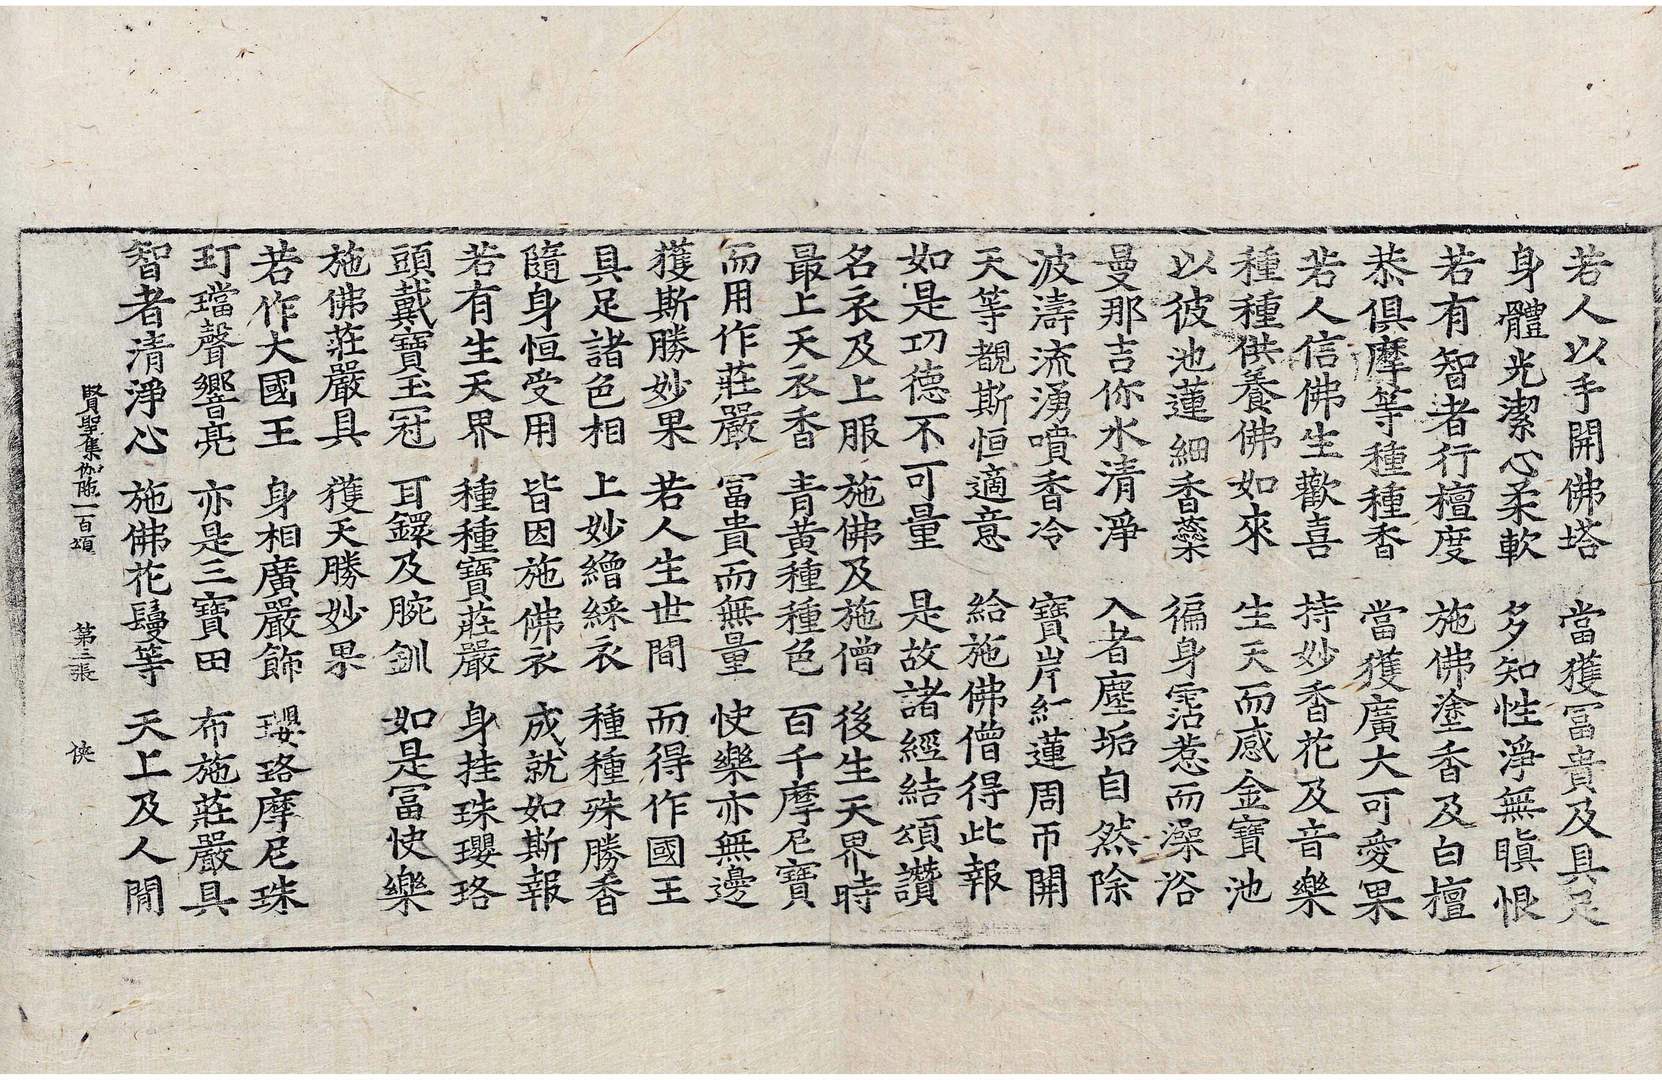 若人以手開佛塔　當獲冨貴及具足
身體光潔心柔軟　多知性淨無瞋恨
若有智者行檀度　施佛塗香及白檀
恭俱摩等種種香　當獲廣大可愛果
若人信佛生歡喜　持妙香花及音樂
種種供養佛如來　生天而感金寶池
以彼池蓮細香蘂　徧身霑惹而澡浴
曼那吉你水清淨　入者塵垢自然除
波濤流湧噴香冷　寶岸紅蓮周帀開
天等覩斯恒適意　給施佛僧得此報
如是功德不可量　是故諸經結頌讚
名衣及上服　施佛及施僧　後生天界時
最上天衣香　青黃種種色　百千摩尼寶
而用作莊嚴　冨貴而無量　快樂亦無邊
獲斯勝妙果　若人生世間　而得作國王
具足諸色相　上妙繒綵衣　種種殊勝香
隨身恒受用　皆因施佛衣　成就如斯報
若有生天界　種種寶莊嚴　身挂珠瓔珞
頭戴寶玉冠　耳鐶及腕釧　如是冨快樂
施佛莊嚴具　獲天勝妙果
若作大國王　身相廣嚴飾　瓔珞摩尼珠
玎璫聲響亮　亦是三寶田　布施莊嚴具
智者清淨心　施佛花鬘等　天上及人間
賢聖集伽陁一百頌　第三張　俠